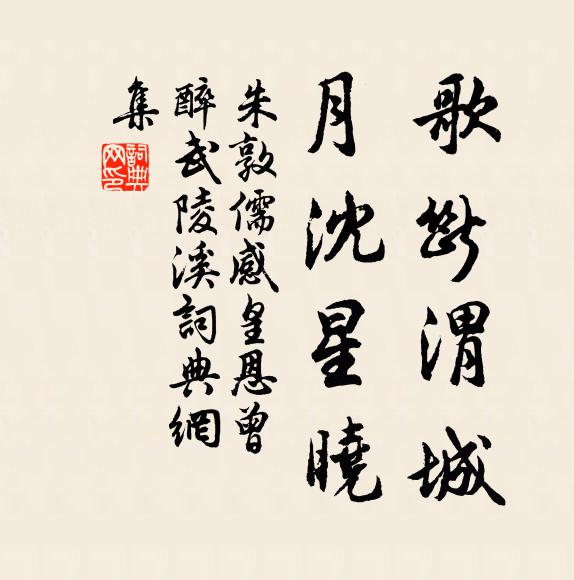 歌斷渭城
月沈星曉
朱敦儒感皇恩曾
醉武陵溪詞典網
集
詞典
网印